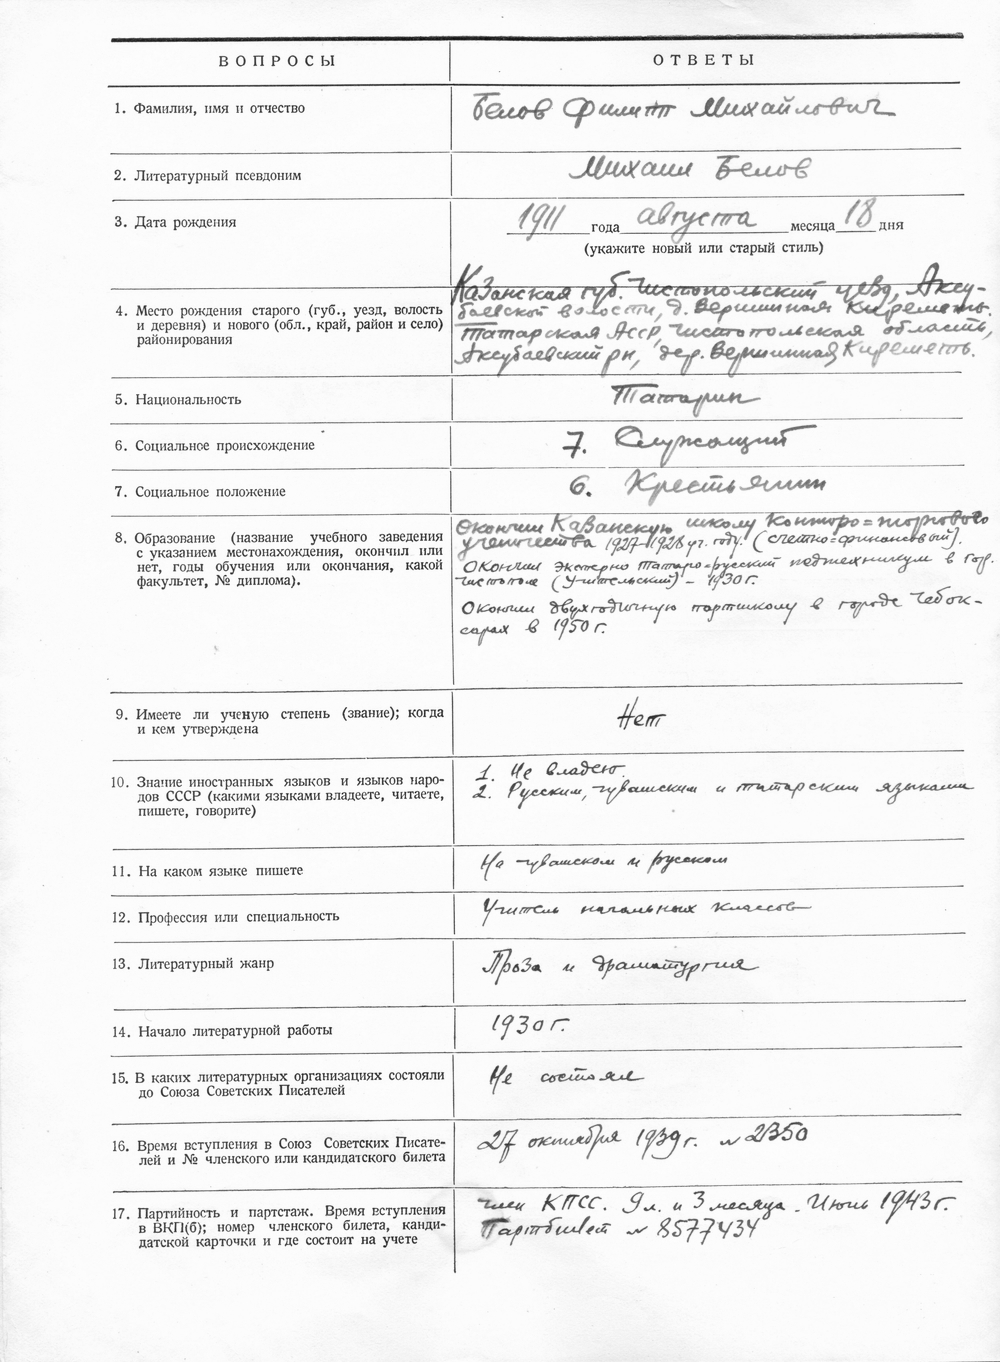 ВОПРОСЫ
ОТВЕТЫ
1. Фамилия, имя и отчество
Белов Филипп Михайлович
2. Литературный псевдоним
Михаил Белов
3. Дата рождения
1911 года августа месяца 18 дня
(укажите новый или старый стиль)
4. Место рождения старого (губ., уезд, волость
и деревня) и нового (обл., край, район и село)
районирования
Казанская губ. Чистопольский уезд, Аксу-
баевской волости, д. Вершинная Киреметь.
Татарская АССР, Чистопольская область,
Аксубаевский рн, дер. Вершинная Киреметь.
5. Национальность
Татарин
6. Социальное происхождение
7. Служащий
7. Социальное положение
6. Крестьянин
8. Образование (название учебного заведения
с указанием местонахождения, окончил или
нет, годы обучения или окончания, какой
факультет, № диплома).
Окончил Казанскую школу конторо=торгового
ученичества 1927-1928 уч. году. (счетно=финансовый).
Окончил экстерно татаро=русский педтехникум в гор.
Чистополе (Учительский) – 1930 г.
Окончил двухгодичную партшколу в городе Чебок-
сарах в 1950 г.
9. Имеете ли ученую степень (звание); когда
и кем утверждена
Нет
10. Знание иностранных языков и языков наро-
дов СССР (какими языками владеете, читаете,
пишете, говорите)
1. Не владею.
2. Русским, чувашским и татарским языками
11. На каком языке пишете
На чувашском и русском
12. Профессия или специальность
Учитель начальных классов
13. Литературный жанр
Проза и драматургия
14. Начало литературной работы
1930 г.
15. В каких литературных организациях состояли
до Союза Советских Писателей
Не состоял
16. Время вступления в Союз Советских Писате-
лей и № членского или кандидатского билета
27 октября 1939 г. № 2350
17. Партийность и партстаж. Время вступления
в ВКП(б); номер членского билета, канди-
датской карточки и где состоит на учете
член КПСС. 9 л. и 3 месяца. Июнь 1943 г.
Партбилет № 8577434